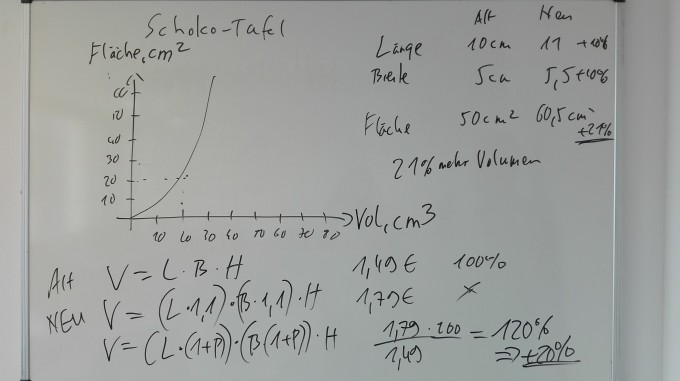 Schoko-Tafel
Fläche, cm²
60
50
40
30
20
10
10 20 30 40 50 60 70 80
Vol, cm3
Alt Neu
Länge 10cm 11 +10%
Breite 5cm 5,5 +10%
Fläche 50cm² 60,5cm² +21%
21% mehr Volumen
Alt V = L · B · H 1,49€ 100%
NEU V = (L · 1,1) · (B · 1,1) · H 1,79€ x
V = (L · (1+P)) · (B (1+P)) · H 1,79 · 100 / 1,49 = 120%
⇒ +20%